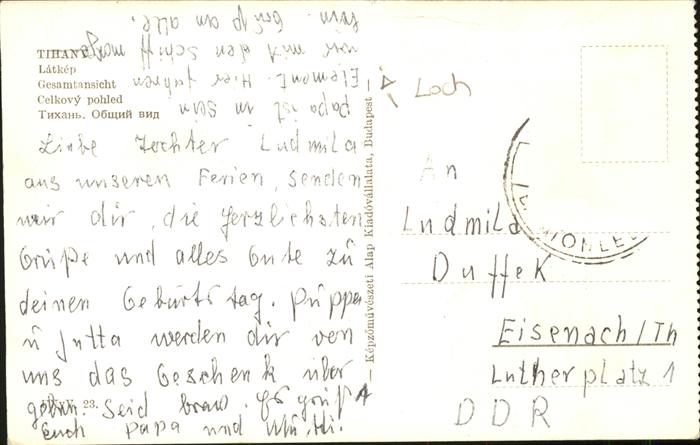 TIHANY
Látkép
Gesamtansicht
Celkový pohled
Тихань. Общий вид
Liebe Tochter Ludmila
aus unseren Ferien, senden
wir dir, die herzlichsten
Grüße und alles Gute zu
deinen Geburtstag. Puppa
u Jutta werden dir von
uns das Geschenk über
geben. Seid brav. Es grüßt
Euch Papa und Mutti.
Papa ist in sein
Element. Hier fahren
wir mit den Schiff morgen
hin. Grüß an alle.
— Képzőművészeti Alap Kiadóvállalata, Budapest —
Loch
An
Ludmila
Duffek
Eisenach/Th
Lutherplatz 1
DDR